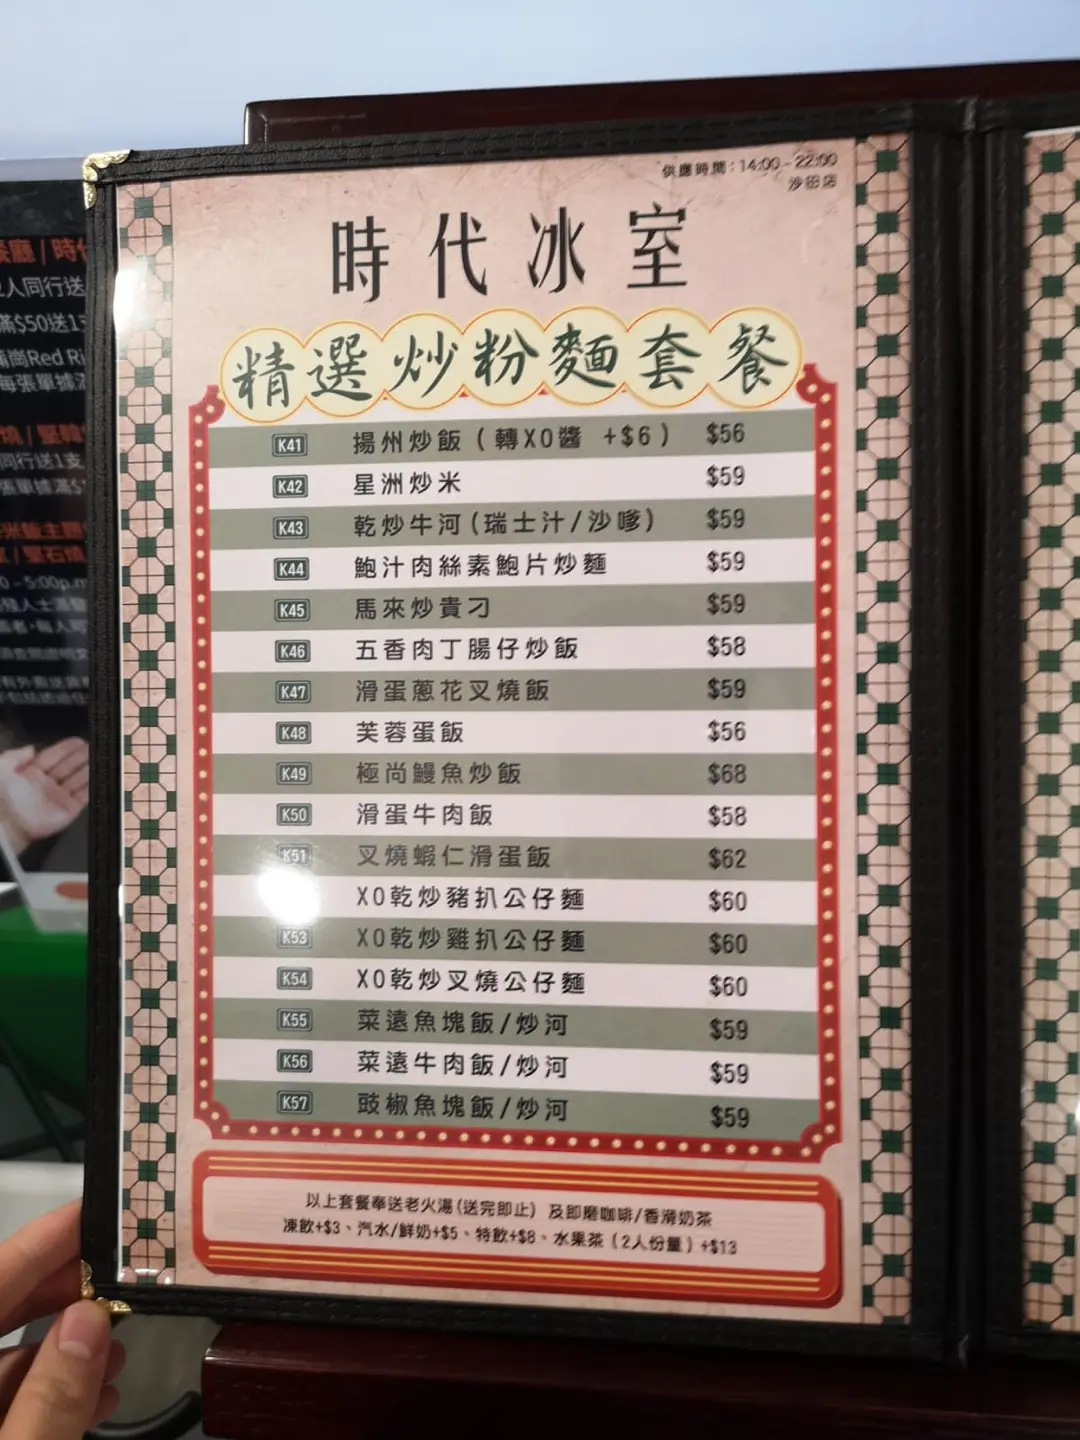 供應時間：14:00 - 22:00
沙田店
時代冰室
精選炒粉麵套餐
K41 揚州炒飯（轉XO醬 +$6） $56
K42 星洲炒米 $59
K43 乾炒牛河(瑞士汁/沙嗲) $59
K44 鮑汁肉絲素鮑片炒麵 $59
K45 馬來炒貴刁 $59
K46 五香肉丁腸仔炒飯 $58
K47 滑蛋蔥花叉燒飯 $59
K48 芙蓉蛋飯 $56
K49 極尚鰻魚炒飯 $68
K50 滑蛋牛肉飯 $58
K51 叉燒蝦仁滑蛋飯 $62
XO乾炒豬扒公仔麵 $60
K53 XO乾炒雞扒公仔麵 $60
K54 XO乾炒叉燒公仔麵 $60
K55 菜遠魚塊飯/炒河 $59
K56 菜遠牛肉飯/炒河 $59
K57 豉椒魚塊飯/炒河 $59
以上套餐奉送老火湯(送完即止) 及即磨咖啡/香滑奶茶
凍飲+$3、汽水/鮮奶+$5、特飲+$8、水果茶（2人份量）+$13
餐廳 | 時
人同行送
滿$50送1
Red Ri
每張單據
同行送1支
- 5:00p.m